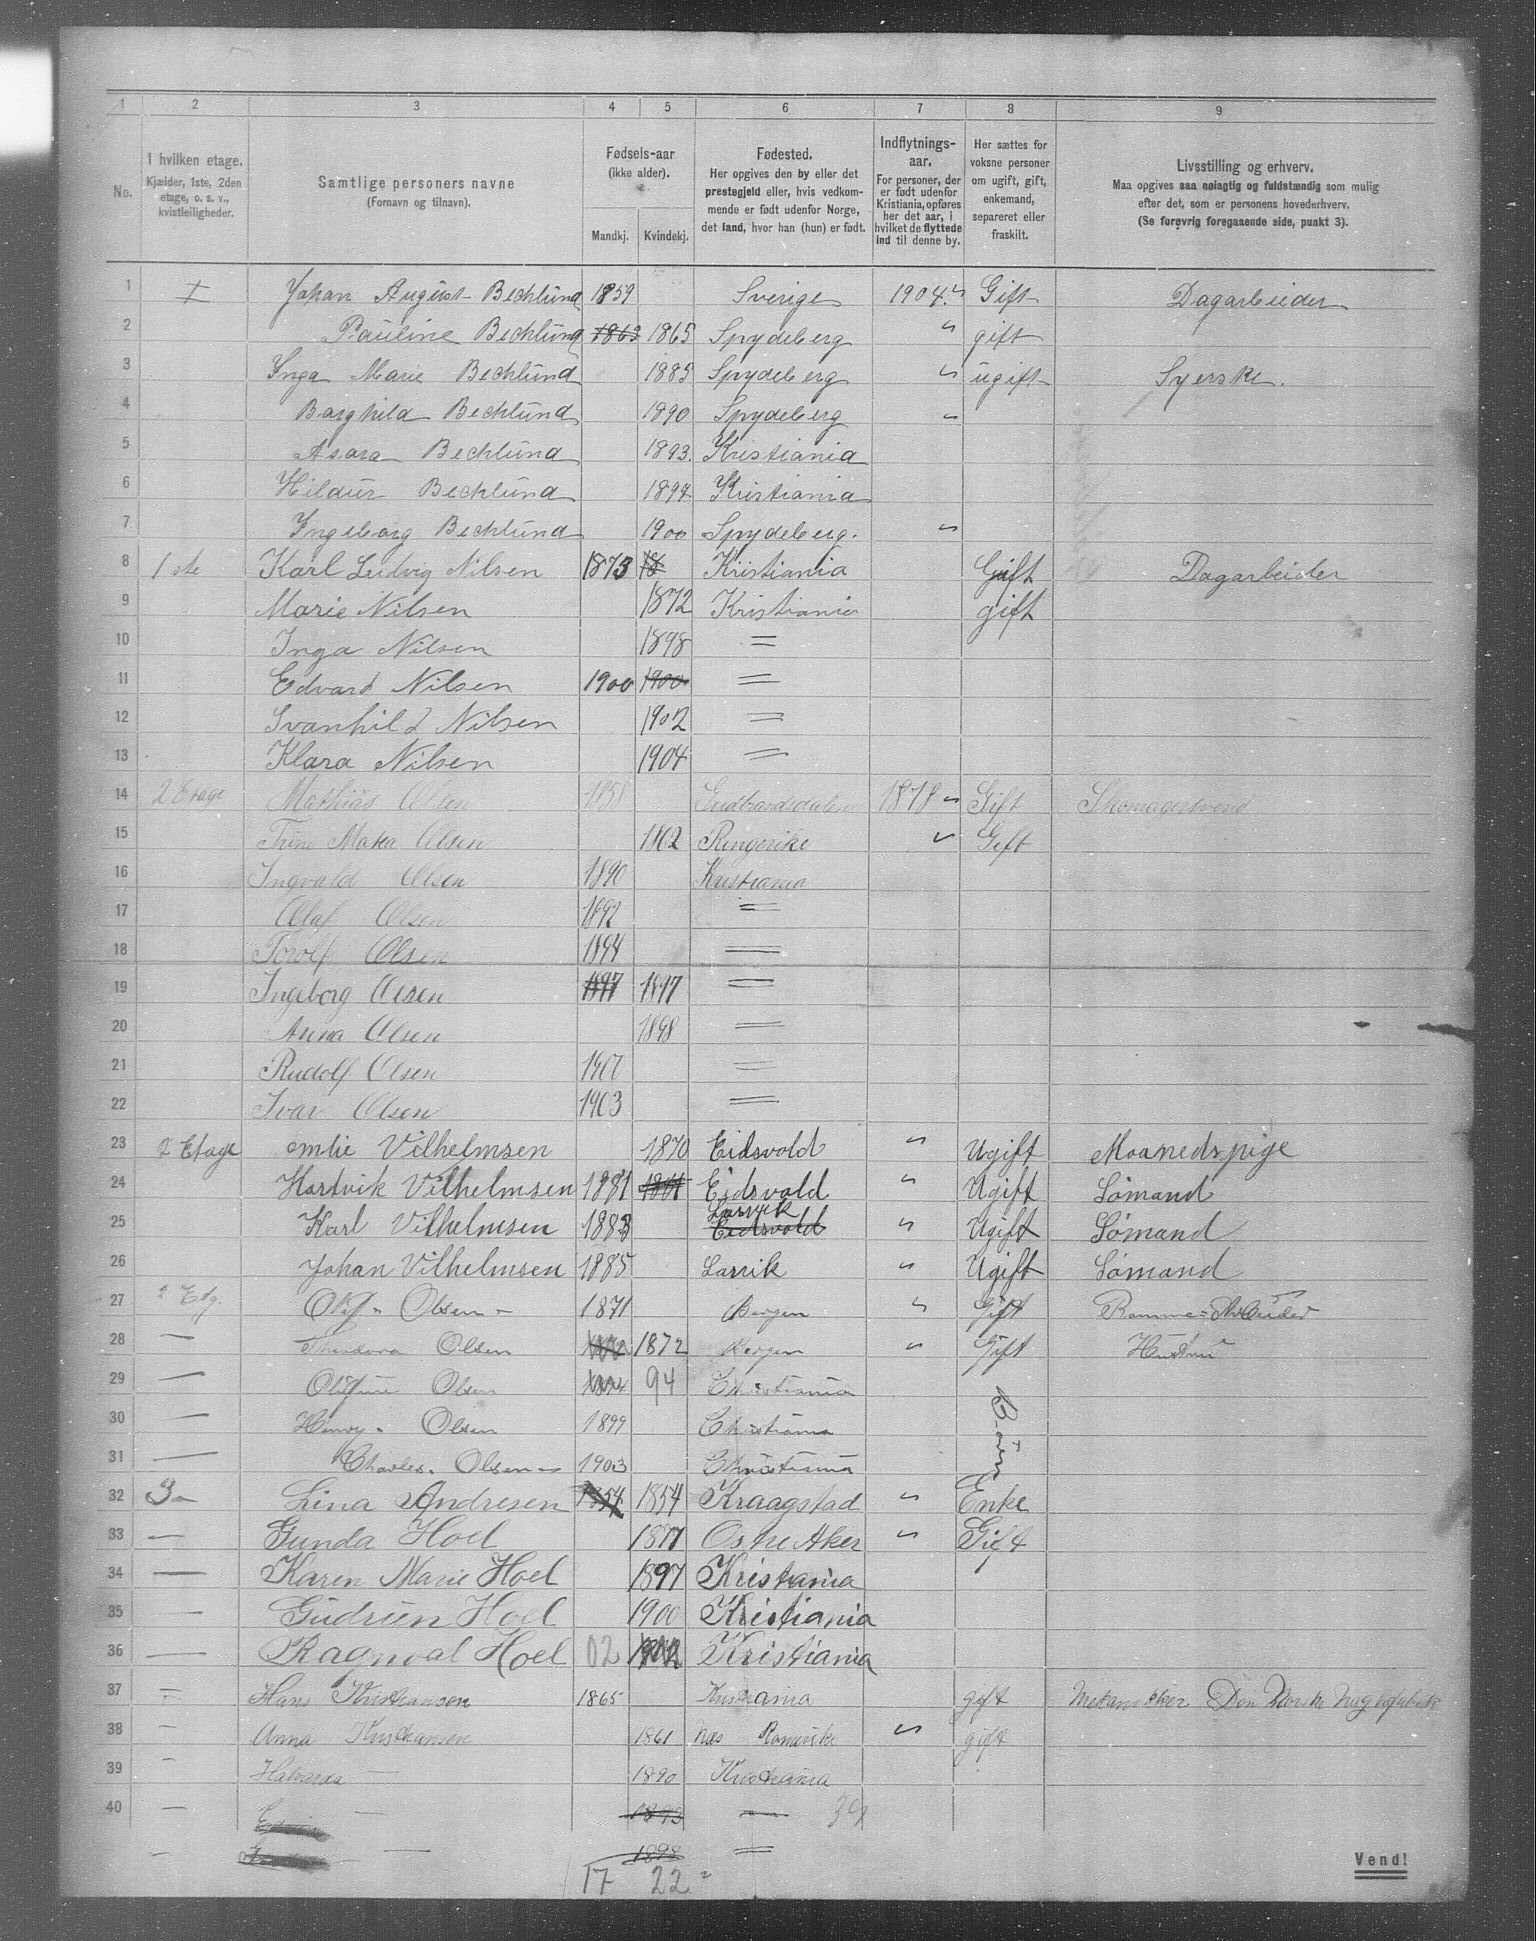 1 2 3 4 5 6 7 8 9
No.
I hvilken etage.
Kjælder, 1ste, 2den
etage, o. s. v.,
kvistleiligheder.
Samtlige personers navne
(Fornavn og tilnavn).
Fødsels-aar
(ikke alder).
Mandkj. Kvindekj.
Fødested.
Her opgives den by eller det
prestegjeld eller, hvis vedkom-
mende er født udenfor Norge,
det land, hvor han (hun) er født.
Indflytnings-
aar.
For personer, der
er født udenfor
Kristiania, opføres
her det aar, i
hvilket de flyttede
ind til denne by.
Her sættes for
voksne personer
om ugift, gift,
enkemand,
separeret eller
fraskilt.
Livsstilling og erhverv.
Maa opgives saa nøiagtig og fuldstændig som mulig
efter det, som er personens hovederhverv.
(Se forøvrig foregaaende side, punkt 3).
1 I Johan August Bechlund 1859 Sverige 1904 Gift Dagarbeider
2 Pauline Bechlund 1863 1865 Spydeberg gift
3 Inga Marie Bechlund 1885 Spydeberg ugift Syerske.
4 Borghild Bechlund 1890 Spydeberg
5 Asora Bechlund 1893. Kristiania
6 Hildur Bechlund 1897 Kristiania
7 Ingeborg Bechlund 1900 Spydeberg.
8 1 ste Karl Ludvig Nilsen 1873 18 Kristiania Gift Dagarbeider
9 Marie Nilsen 1872 Kristiania gift
10 Inga Nilsen 1898 =
11 Edvard Nilsen 1900 1900 =
12 Svanhild Nilsen 1902 =
13 Klara Nilsen 1904 =
14 2 Etage Mathias Olsen 1858 Gudbrandsdalen 1878 Gift Skomagersvend
15 Trine Olsen 1862 Ringerike Gift
16 Ingvald Olsen 1890 Kristiania
17 Olaf Olsen 1892 =
18 Torolf Olsen 1894 =
19 Ingeborg Olsen 1897 1897 =
20 Anna Olsen 1898 =
21 Rudolf Olsen =
22 Ivar Olsen 1903 =
23 2 Etage Emlie Vilhelmsen 1870 Eidsvold Ugift Maanedspige
24 Hartvik Vilhelmsen 1881 1881 Eidsvold Ugift Sømand
25 Karl Vilhelmsen 1883 Larvik Eidsvold Ugift Sømand
26 Johan Vilhelmsen 1885 Larvik Ugift Sømand
27 2 Etg. Olaf Olsen 1871 Bergen Gift Ramme-Arbeider
28 — Theodora Olsen 1872 Bergen Gift Hustru
29 — Olufine Olsen 94 Christiania Børn
30 — Henry Olsen 1899 Christiania
31 — Charles Olsen 1903 Christiania
32 3 Lina Andresen 1854 1854 Kraagstad Enke
33 — Gunda Hoel 1877 Østre Aker Gift
34 — Karen Marie Hoel 1897 Kristiania
35 — Gudrun Hoel 1900 Kristiania
36 — Ragnval Hoel 02 1902 Kristiania
37 = Hans Kristiansen 1865 Kristiania gift Mekanikker Den Norske
38 — Anna Kristiansen 1861 Næs Romerike gift
39 — 1890 Kristiania
40 — 1893 — 39
— 1898 =
17 22
Vend!